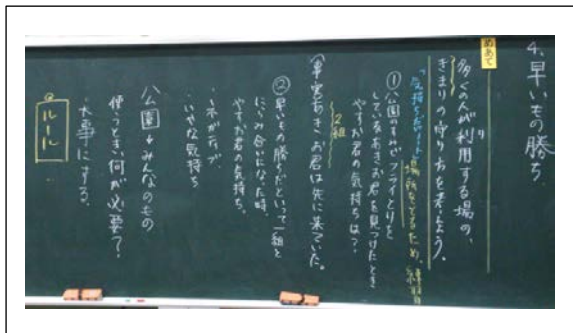 4. 早いもの勝ち
めあて
多くの人が利用する場の、
り
きまりの守り方を考えよう。
場所をとるため
①公園のすみでフライとりを
しているあきお君を見つけたとき
やすお君の気持ちは?
2組
あきお君は先に来ていた。
②早いもの勝ちだといって一組と
にらみ合いになった時、
やすお君の気持ち。
・ネガティブ
・いやな気持ち
公園→みんなのもの
使うとき、何が必要?
大事にする。
ルール